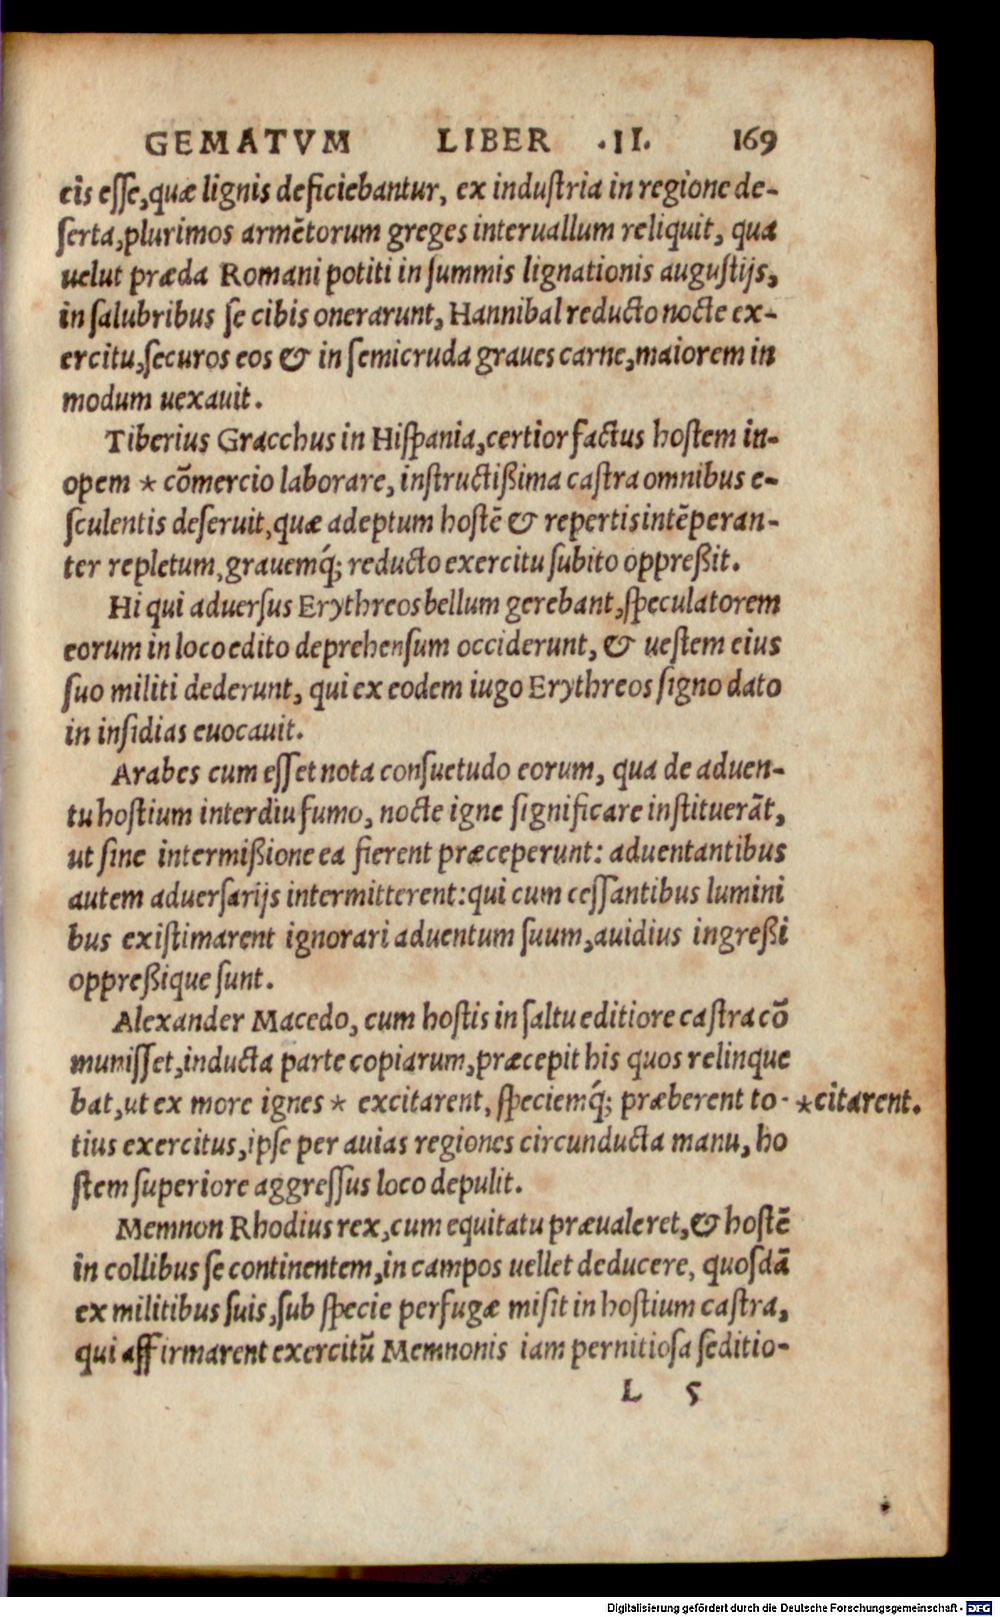 GEMATVM LIBER .II. 169
eis eſſe,quæ lignis deficiebantur, ex induſtria in regione de-
ſerta,plurimos armētorum greges interuallum reliquit, qua
uelut præda Romani potiti in ſummis lignationis auguſtijs,
in ſalubribus ſe cibis onerarunt, Hannibal reducto nocte ex-
ercitu,ſecuros eos & in ſemicruda graues carne,maiorem in
modum uexauit.
Tiberius Gracchus in Hiſpania,certior factus hoſtem in-
opem * cōmercio laborare, inſtructißima caſtra omnibus e-
ſculentis deſeruit,quæ adeptum hoſtē & repertis intēperan-
ter repletum,grauemq́; reducto exercitu ſubito oppreßit.
Hi qui aduerſus Erythreos bellum gerebant,ſpeculatorem
eorum in loco edito deprehenſum occiderunt, & ueſtem eius
ſuo militi dederunt, qui ex eodem iugo Erythreos ſigno dato
in inſidias euocauit.
Arabes cum eſſet nota conſuetudo eorum, qua de aduen-
tu hoſtium interdiu fumo, nocte igne ſignificare inſtituerāt,
ut ſine intermißione ea fierent præceperunt: aduentantibus
autem aduerſarijs intermitterent:qui cum ceſſantibus lumini
bus exiſtimarent ignorari aduentum ſuum,auidius ingreßi
oppreßique ſunt.
Alexander Macedo, cum hoſtis in ſaltu editiore caſtra cō
muniſſet,inducta parte copiarum,præcepit his quos relinque
bat,ut ex more ignes * excitarent, ſpeciemq́; præberent to- *citarent.
tius exercitus,ipſe per auias regiones circunducta manu, ho
ſtem ſuperiore aggreſſus loco depulit.
Memnon Rhodius rex,cum equitatu præualeret,& hoſtē
in collibus ſe continentem,in campos uellet deducere, quoſdā
ex militibus ſuis,ſub ſpecie perfugæ miſit in hoſtium caſtra,
qui affirmarent exercitū Memnonis iam pernitioſa ſeditio-
L 5
Digitalisierung gefördert durch die Deutsche Forschungsgemeinschaft - DFG